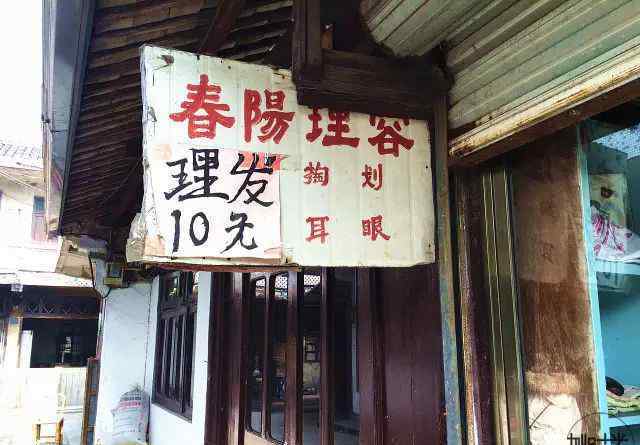 春陽理容
理发
10元
掏耳
划眼